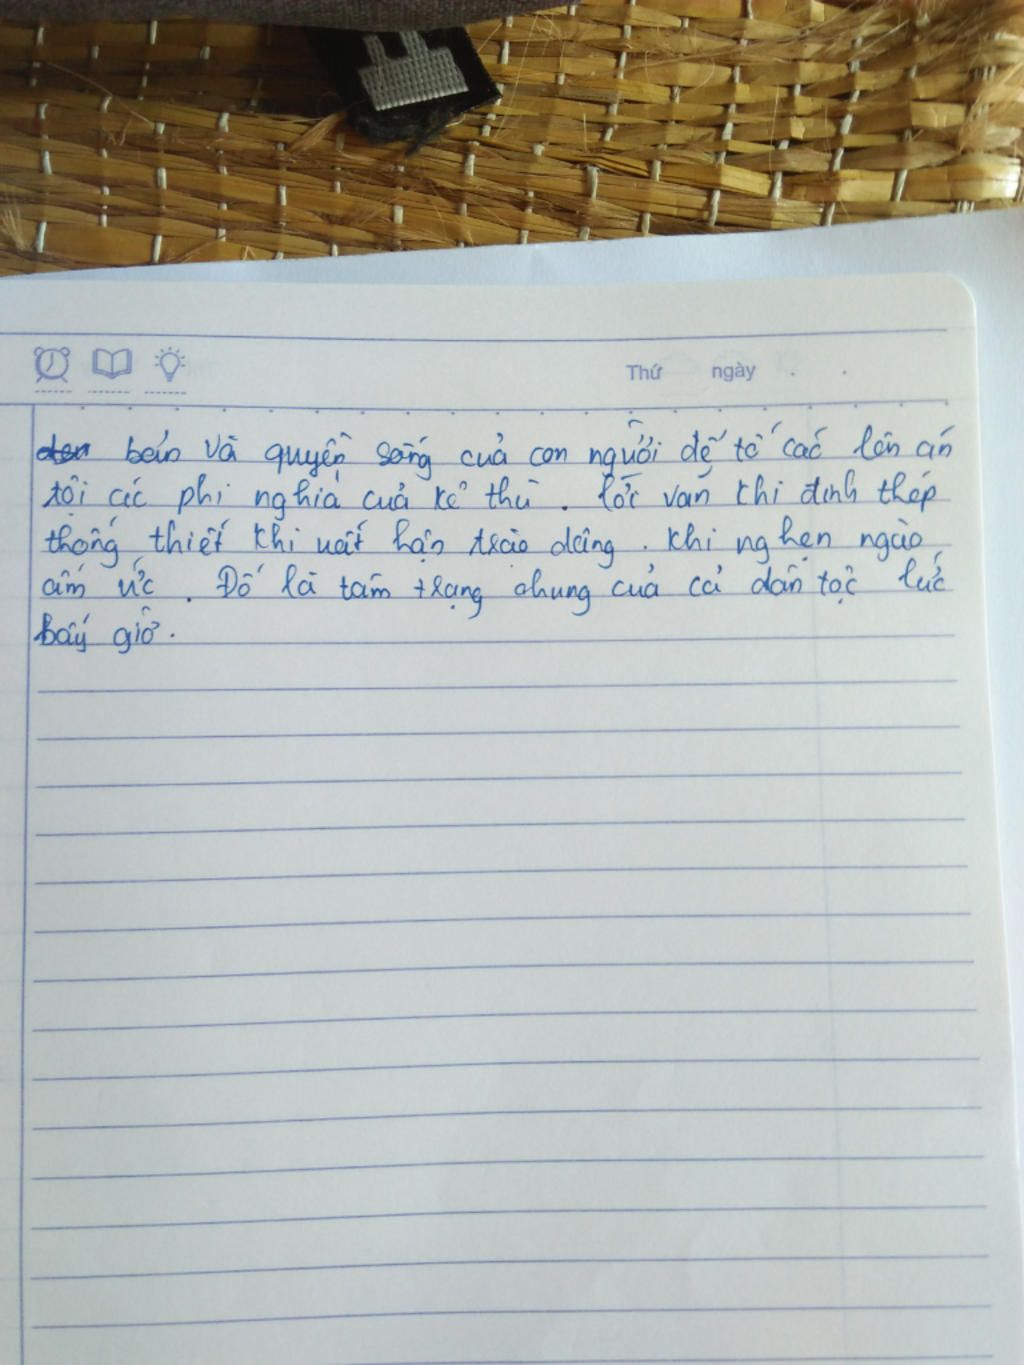 Thứ ngày . .
bản và quyền sống của con người để tố cáo lên án
tội ác phi nghĩa của kẻ thù . lời văn khi đinh thép
thống thiết khi uất hận trào dâng . khi nghẹn ngào
ấm ức . Đó là tâm trạng chung của cả dân tộc lúc
bấy giờ .